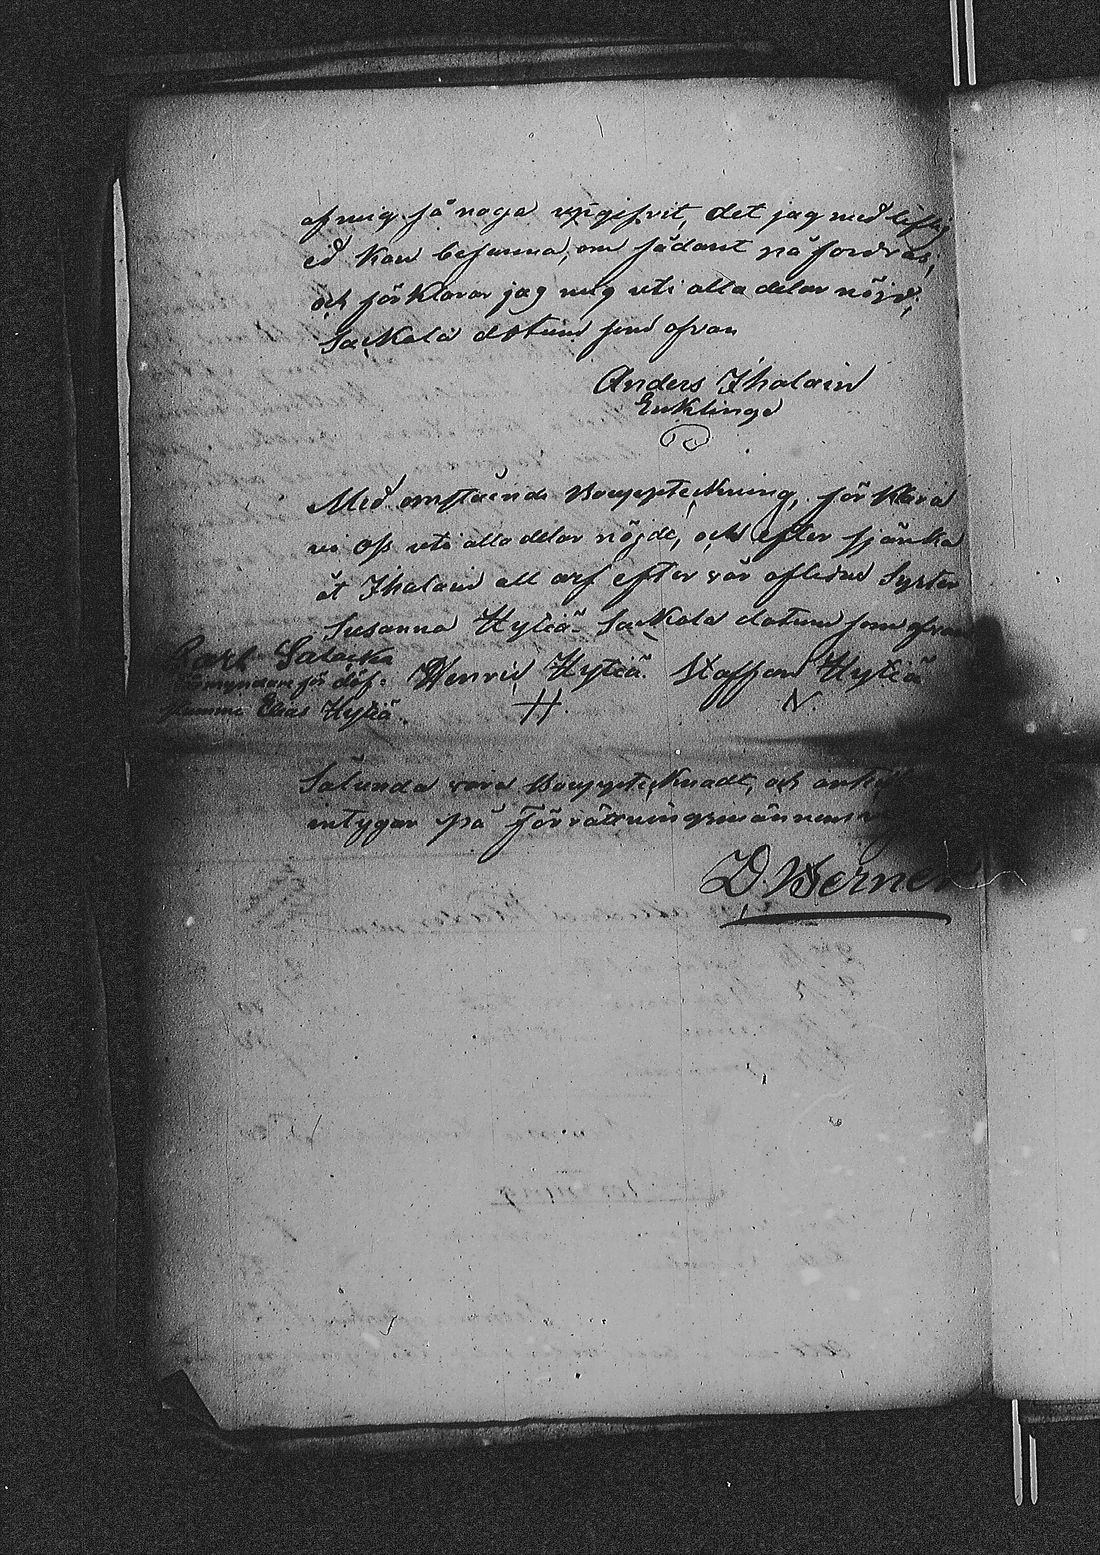 af mig så noga upgifvit, det jag med liflig
ed kan besanna, om sådant på fordras,
och förklarar jag mig uti alla delar nöjd,
Sackala datum som ofvan
Anders Ihalain
Enklinge
Med omstående Bouppteckning, för klara
vi oss uti alla delar nöjde, och efter skjänka
åt Ihalain all arf efter vår afledne Syster
Susanna Hytiä Sackala datum som ofvan
Carl Salacka
förmyndare för döf-
stumma Elias Hytiä.
Henric Hytiä
H
Staffan Hytiä
N
Sålunda vara Bouppteknadt, och
intygar på Förrättningsmännens
D. Werner